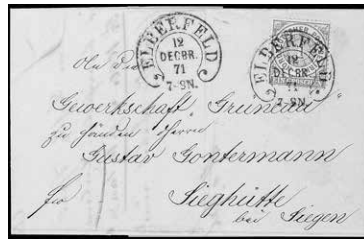 ELBERFELD
12
DECBR.
71
7-9N.
ELBERFELD
12
DECBR.
71
7-9N.
An die
Gewerkschaft „Grüneau"
zu Händen Herrn
Gustav Gontermann
Sieghütte
bei Siegen